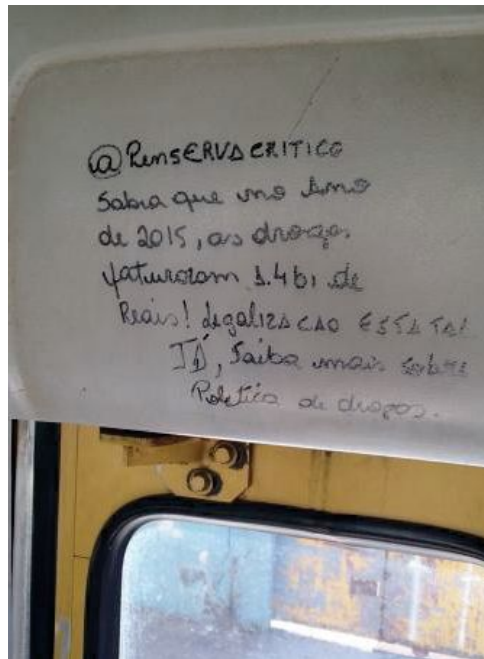 @PENSERVACRITICO
Sabia que no Ano
de 2015, as drogas
faturaram 1.4 bi de
Reais! LegalizACAO ESTATAL
JÁ, Saiba mais sobre
Politica de drogas.